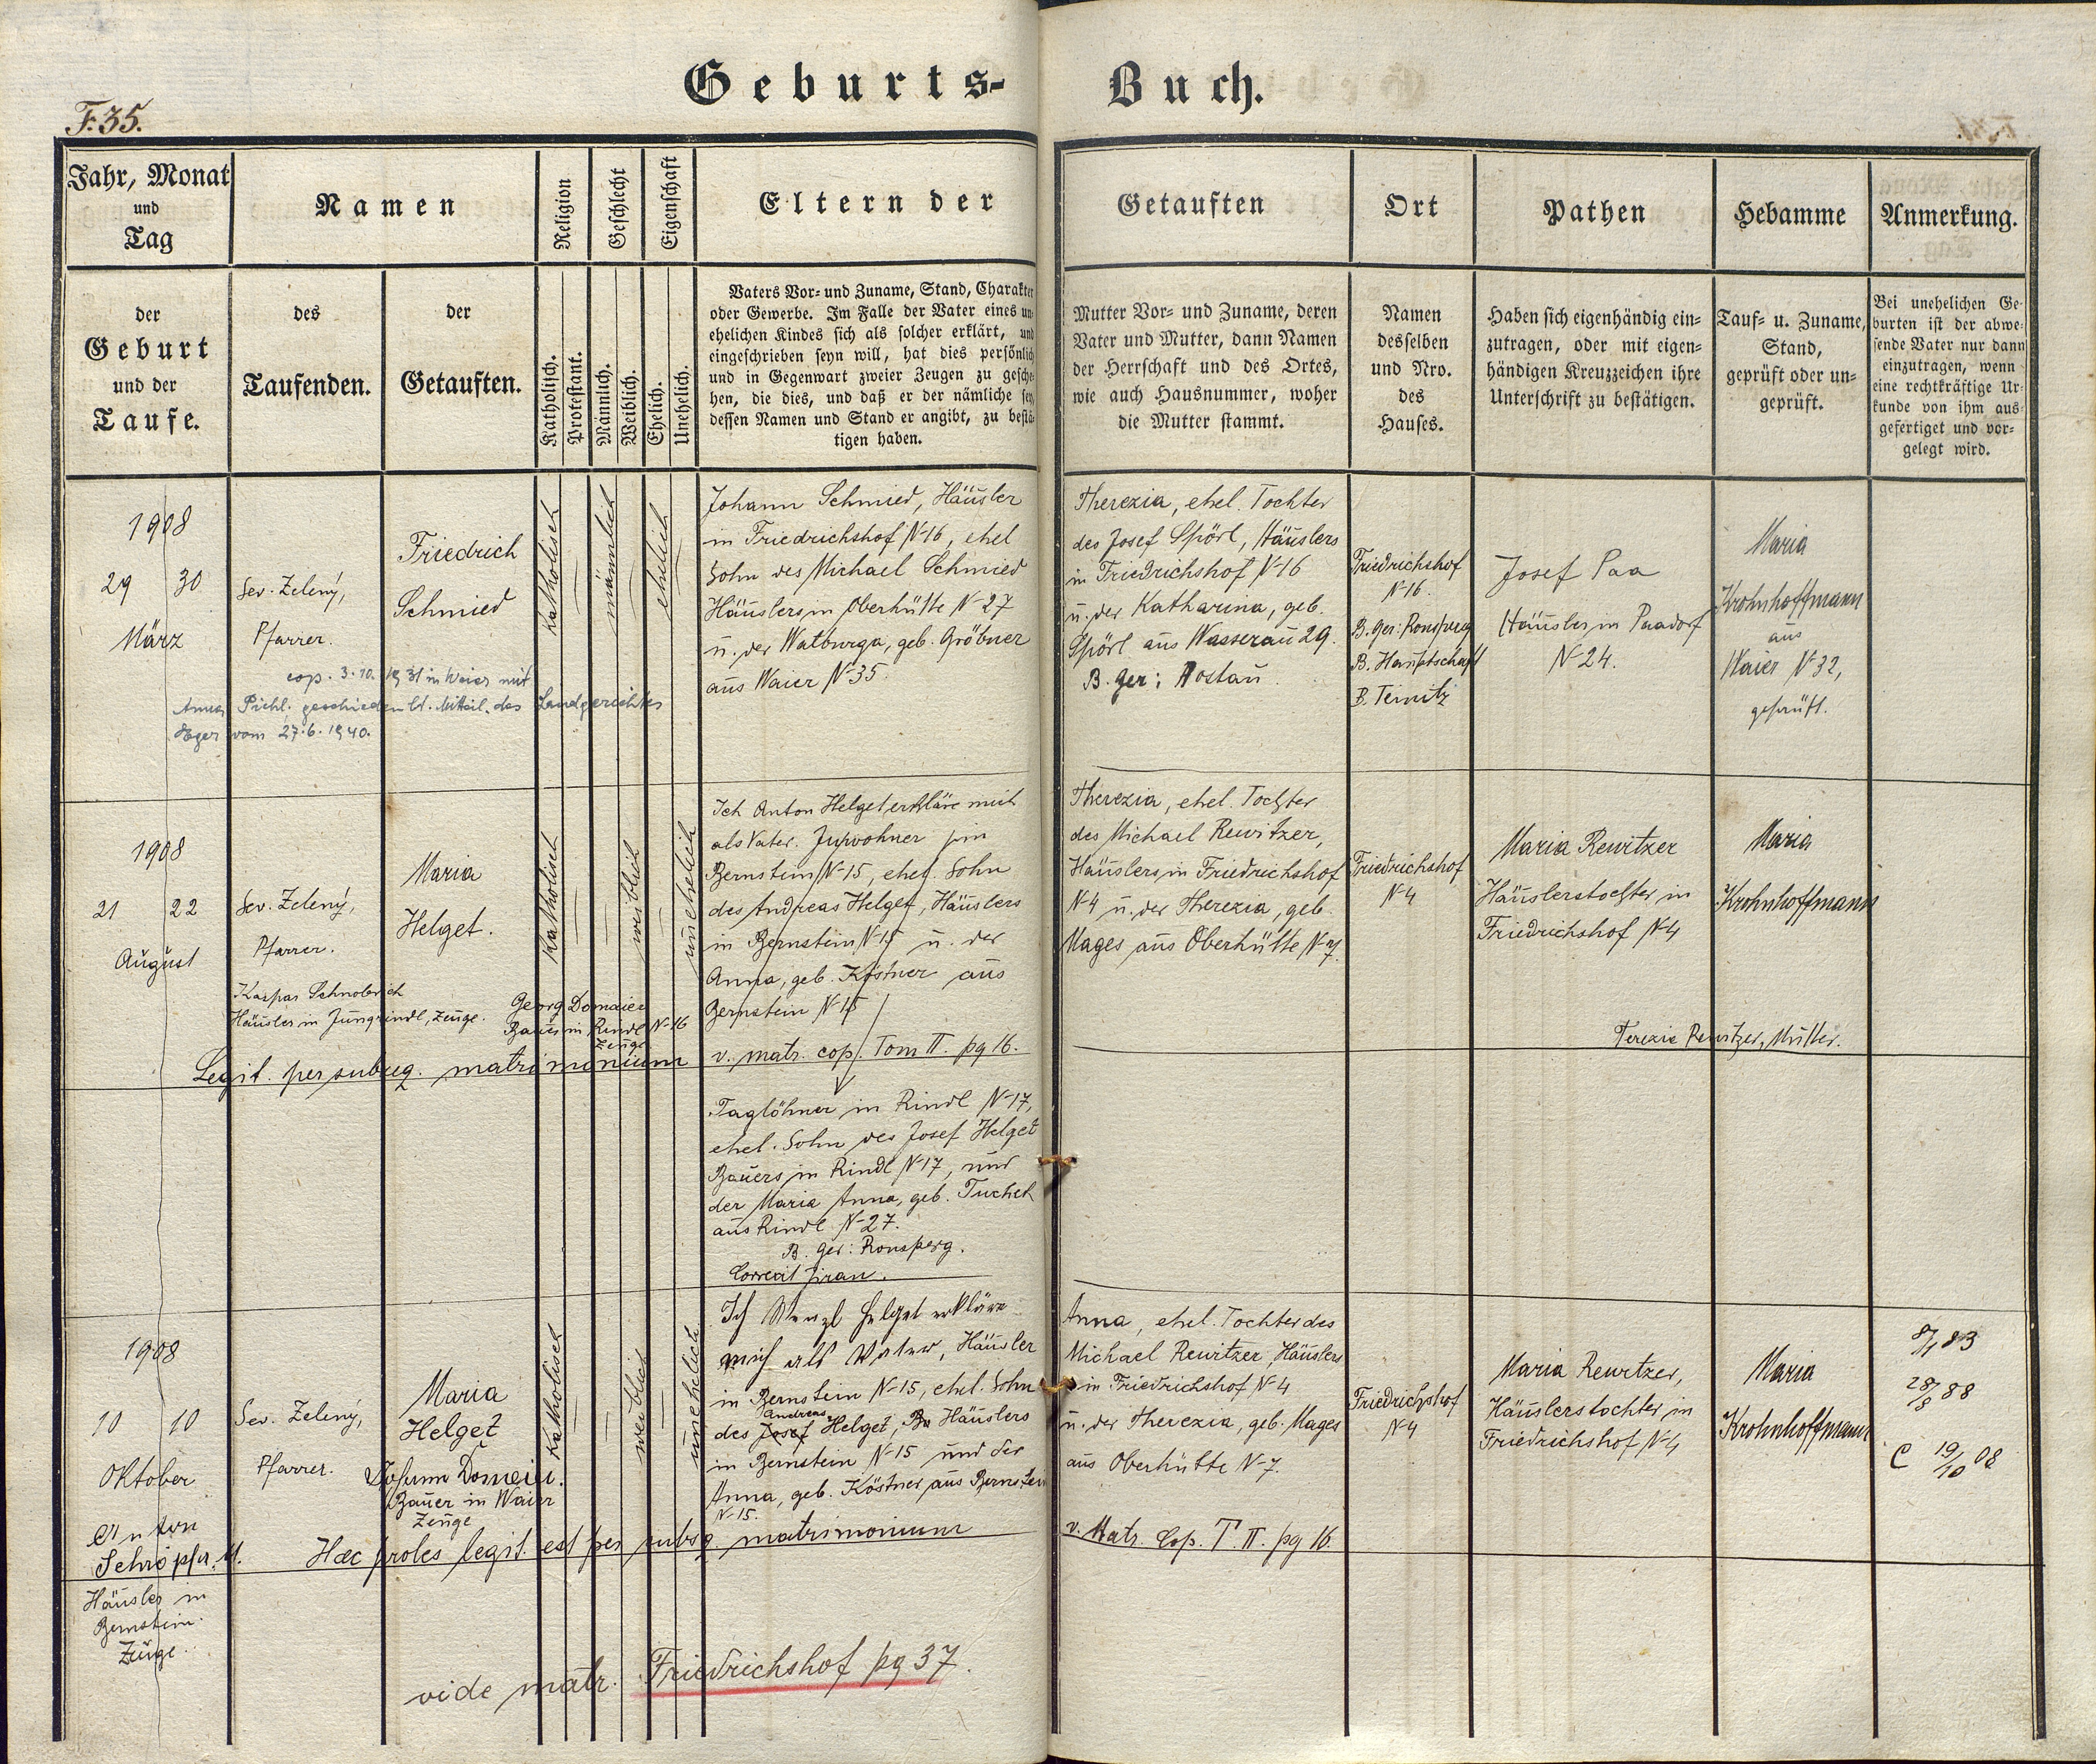 Geburts-Buch.
F. 35.
Jahr, Monat
und
Tag
Namen
Religion
Geschlecht
Eigenschaft
Eltern der
Getauften
Ort
Pathen
Hebamme
Anmerkung.
der
Geburt
und der
Taufe.
des
Taufenden.
der
Getauften.
Katholisch.
Protestant.
Männlich.
Weiblich.
Ehelich.
Unehelich.
Vaters Vor- und Zuname, Stand, Charakter
oder Gewerbe. Im Falle der Vater eines un-
ehelichen Kindes sich als solcher erklärt, und
eingeschrieben seyn will, hat dies persönlich
und in Gegenwart zweier Zeugen zu gesche-
hen, die dies, und daß er der nämliche sey,
dessen Namen und Stand er angibt, zu bestä-
tigen haben.
Mutter Vor- und Zuname, deren
Vater und Mutter, dann Namen
der Herrschaft und des Ortes,
wie auch Hausnummer, woher
die Mutter stammt.
Namen
desselben
und Nro.
des
Hauses.
Haben sich eigenhändig ein-
zutragen, oder mit eigen-
händigen Kreuzzeichen ihre
Unterschrift zu bestätigen.
Tauf- u. Zuname,
Stand,
geprüft oder un-
geprüft.
Bei unehelichen Ge-
burten ist der abwe-
sende Vater nur dann
einzutragen, wenn
eine rechtkräftige Ur-
kunde von ihm aus-
gefertiget und vor-
gelegt wird.
1908
29 30
März
Sev. Zelený,
Pfarrer.
Friedrich
Schmied
katholisch
männlich
ehelich
Johann Schmied, Häusler
in Friedrichshof N-16, ehel
Sohn des Michael Schmied
Häuslers in Oberhütte N-27
u. der Walburga, geb. Gröbner
aus Waier N-35.
Therezia, ehel. Tochter
des Josef Spörl, Häuslers
in Friedrichshof N-16
u. der Katharina, geb.
Spörl aus Wasserau 29.
B. Ger: Hostau.
Friedrichshof
N-16.
B. Ger: Ronsperg
B. Hauptschaft
B. Teinitz
Josef Paa
Häusler in Paadorf
N-24.
Maria
Krohnhoffmann
aus
Waier N-32,
geprüft.
cop. 3.10. 1931 in Weier mit
Anna Pichl. geschieden lt. Mitteil. des Landgerichtes
Eger vom 27.6.1940.
1908
21 22
August
Sev. Zelený,
Pfarrer.
Maria
Helget.
katholisch
weiblich
unehelich
Ich Anton Helget erkläre mich
als Vater. Inwohner in
Bernstein N-15, ehel. Sohn
des Andreas Helget, Häuslers
in Bernstein N-15 u. der
Anna, geb. Köstner aus
Bernstein N-15
Therezia, ehel. Tochter
des Michael Rewitzer,
Häuslers in Friedrichshof
N-4 u. der Therezia, geb.
Mages aus Oberhütte N-7.
Friedrichshof
N-4
Maria Rewitzer
Häuslerstochter in
Friedrichshof N-4
Maria
Krohnhoffmann
Kaspar Schnobrich
Häusler in Jungrindl, Zeuge.
Georg Domaier
Bauer in Rindl N-16
Zeuge
Terezie Rewitzer, Mutter.
Legit. per subseq. matrimonium v. matr. cop. Tom II. pg 16.
Taglöhner in Rindl N-17,
ehel. Sohn des Josef Helget
Bauers in Rindl N-17, und
der Maria Anna, geb. Tuchek
aus Rindl N-27.
B. Ger: Ronsperg.
Correxit Jiran.
1908
10 10
Oktober
Sev. Zelený,
Pfarrer.
Maria
Helget
katholisch
weiblich
unehelich
Ich Wenzl Helget erkläre
mich als Vater, Häusler
in Bernstein N-15, ehel. Sohn
Andreas
des Josef Helget, Ba Häuslers
in Bernstein N-15 und der
Anna, geb. Köstner aus Bernstein
N-15.
Anna, ehel. Tochter des
Michael Rewitzer, Häuslers
in Friedrichshof N-4
u. der Therezia, geb. Mages
aus Oberhütte N-7.
Friedrichshof
N-4
Maria Rewitzer,
Häuslerstochter in
Friedrichshof N-4
Maria
Krohnhoffmann
8/1 83
28/8 88
C 19/10 08
Johann Domeier.
Bauer in Waier
Zeuge
Anton
Schröpfer.
Häusler in
Bernstein.
Zeuge.
Hæc proles legit. est per subsq. matrimonium v. Matr. Cop. T. II. pg 16.
vide matr. Friedrichshof pg 37.